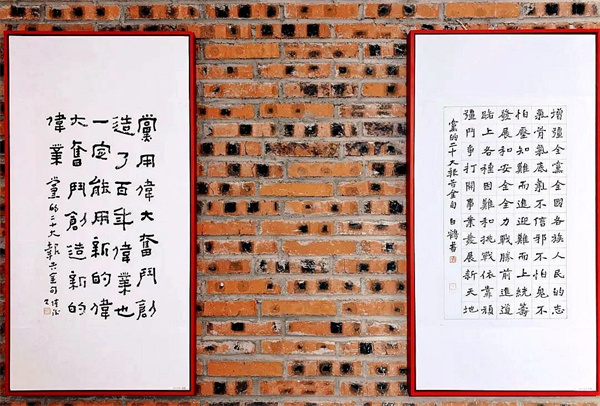 黨用偉大奮鬥創
造了百年偉業也
一定能用新的偉
大奮鬥創造新的
偉業
黨的二十大報告金句
增強全黨全國各族人民的志
氣骨氣底氣不信邪不怕鬼不
怕壓知難而進迎難而上統籌
發展和安全全力戰勝前進道
路上各種困難和挑戰依靠頑
強鬥爭打開事業發展新天地
黨的二十大報告金句 白鶴書